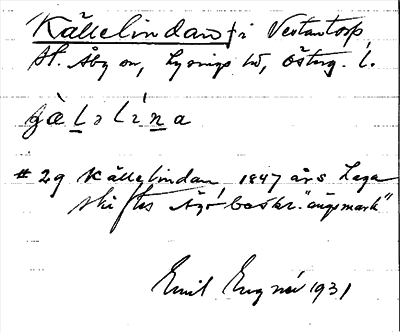 Källelindan, i Vestantorp
St. Åby sn, Lysings hd, Österg. l.
gä̀lǝlína
# 29 Källelindan, 1847 års Laga
skiftes Ägobeskr. "ängsmark"
Emil 1931